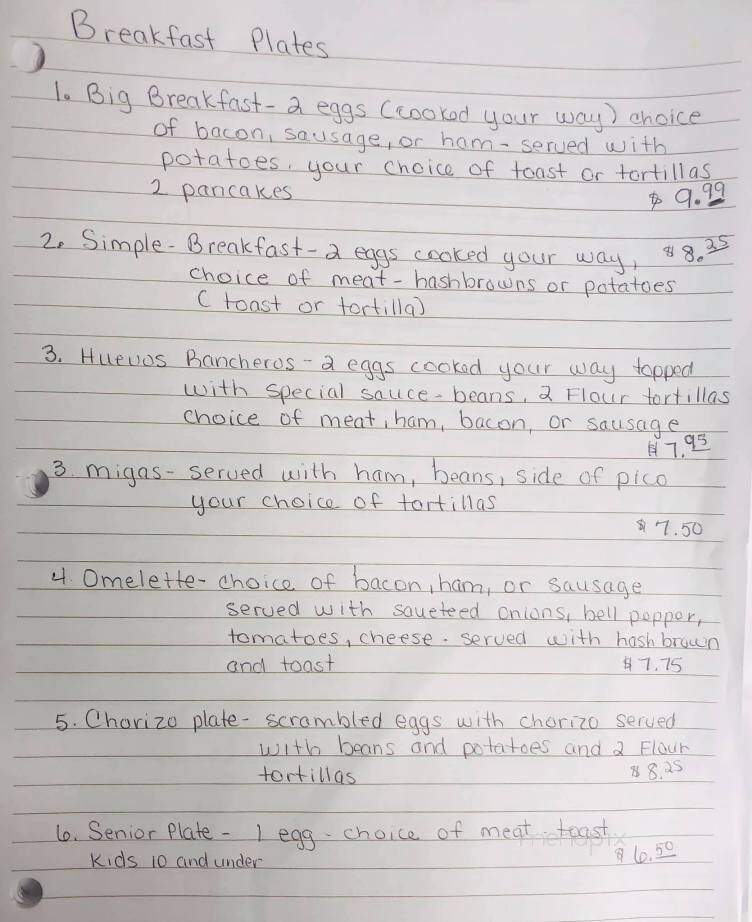 Breakfast Plates
1. Big Breakfast - 2 eggs (cooked your way) choice
of bacon, sausage, or ham - served with
potatoes. your choice of toast or tortillas
2 pancakes $ 9.99
2. Simple - Breakfast - 2 eggs cooked your way, $ 8.25
choice of meat - hashbrowns or potatoes
( toast or tortilla)
3. Huevos Rancheros - 2 eggs cooked your way topped
with special sauce - beans, 2 Flour tortillas
choice of meat, ham, bacon, or sausage
$ 7.95
3. migas - served with ham, beans, side of pico
your choice of tortillas
$ 7.50
4. Omelette - choice of bacon, ham, or sausage
served with saueteed onions, bell pepper,
tomatoes, cheese - served with hash brown
and toast $ 7.75
5. Chorizo plate - scrambled eggs with chorizo served
with beans and potatoes and 2 Flour
tortillas $ 8.25
6. Senior Plate - 1 egg - choice of meat - toast
Kids 10 and under $ 6.50
menupix